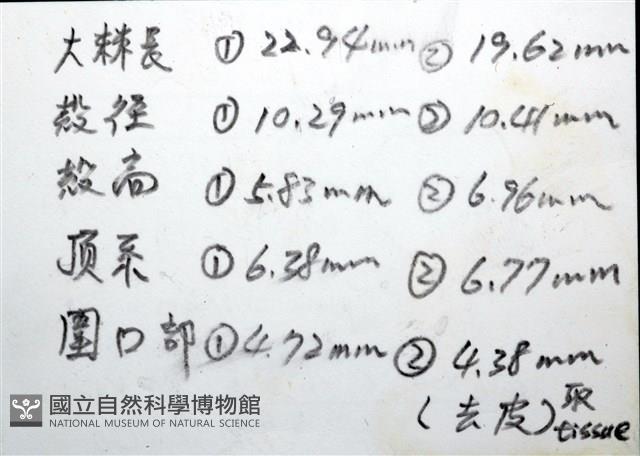 大棘長 ① 22.94mm ② 19.62mm
殼徑 ① 10.29mm ② 10.41mm
殼高 ① 5.83mm ② 6.96mm
頂系 ① 6.38mm ② 6.77mm
圍口部 ① 4.72mm ② 4.38mm
(去皮) 取
tissue
國立自然科學博物館
NATIONAL MUSEUM OF NATURAL SCIENCE